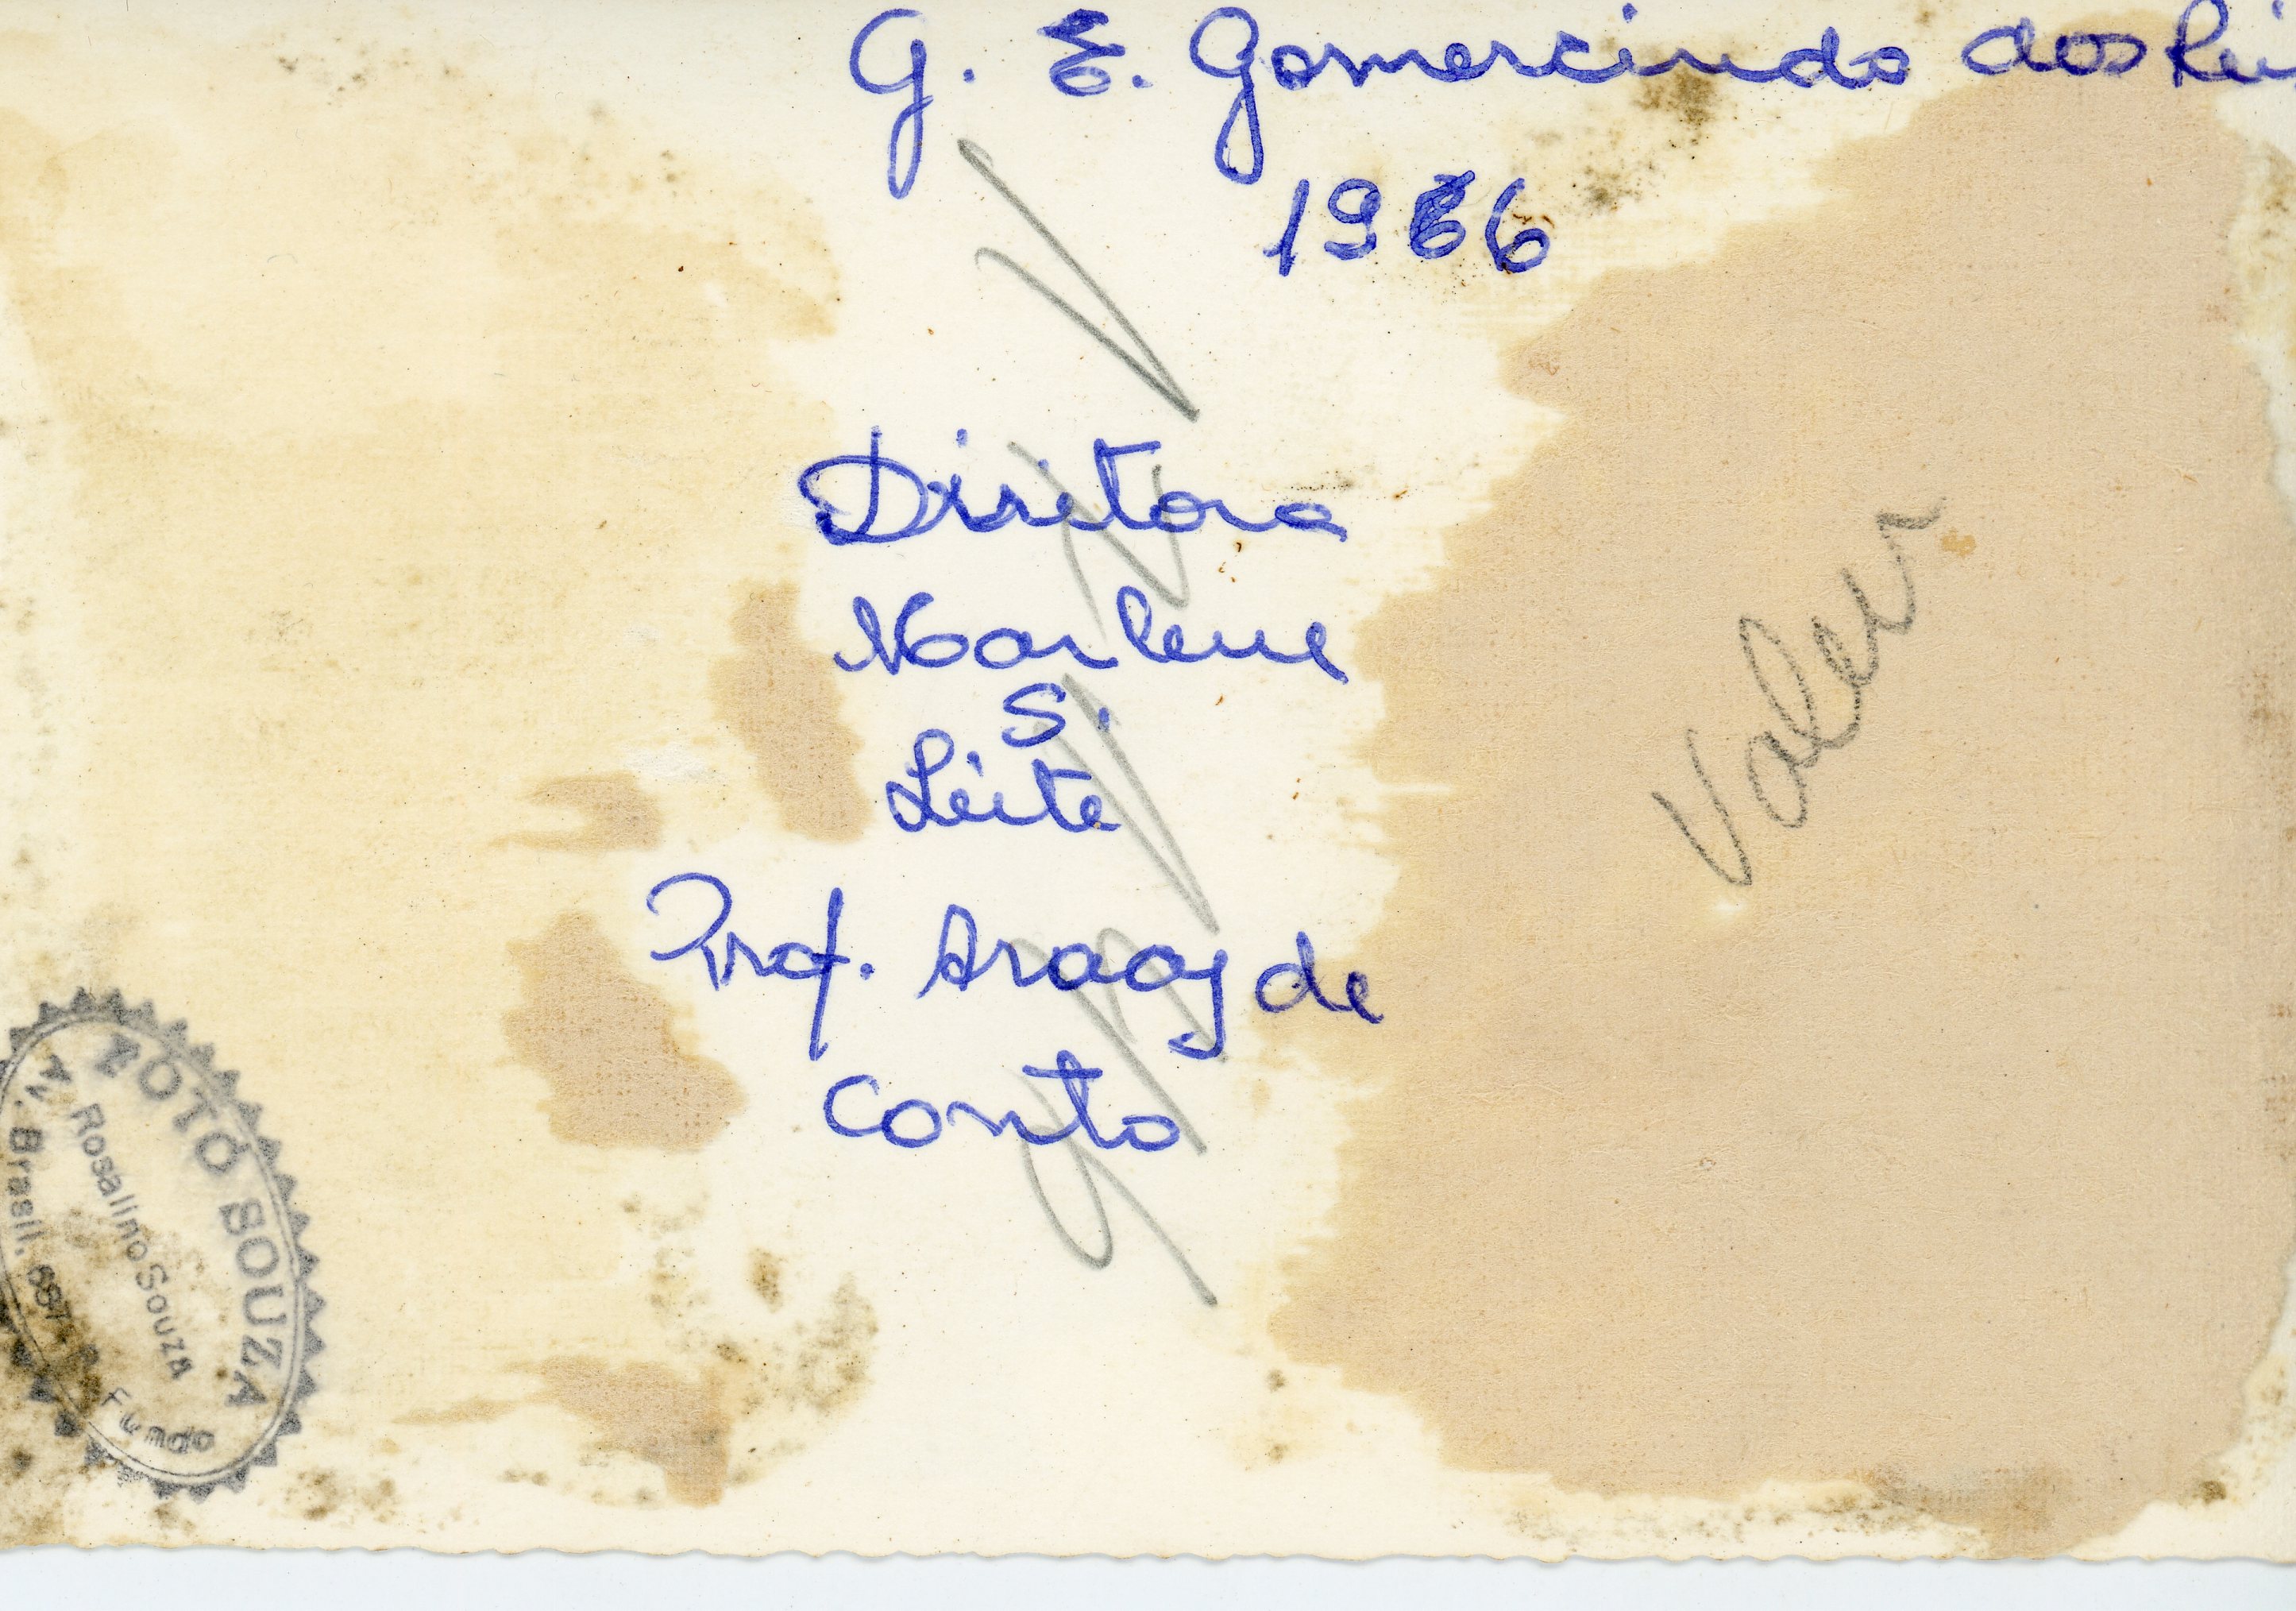 G. E. Gomercindo dos Rei
1966
Diretora
Marlene
S.
Leite
Prof. Aracy de
Conto
Valeu
FOTO SOUZA
Rosalino Souza
Av. Brasil, 687
Fundo